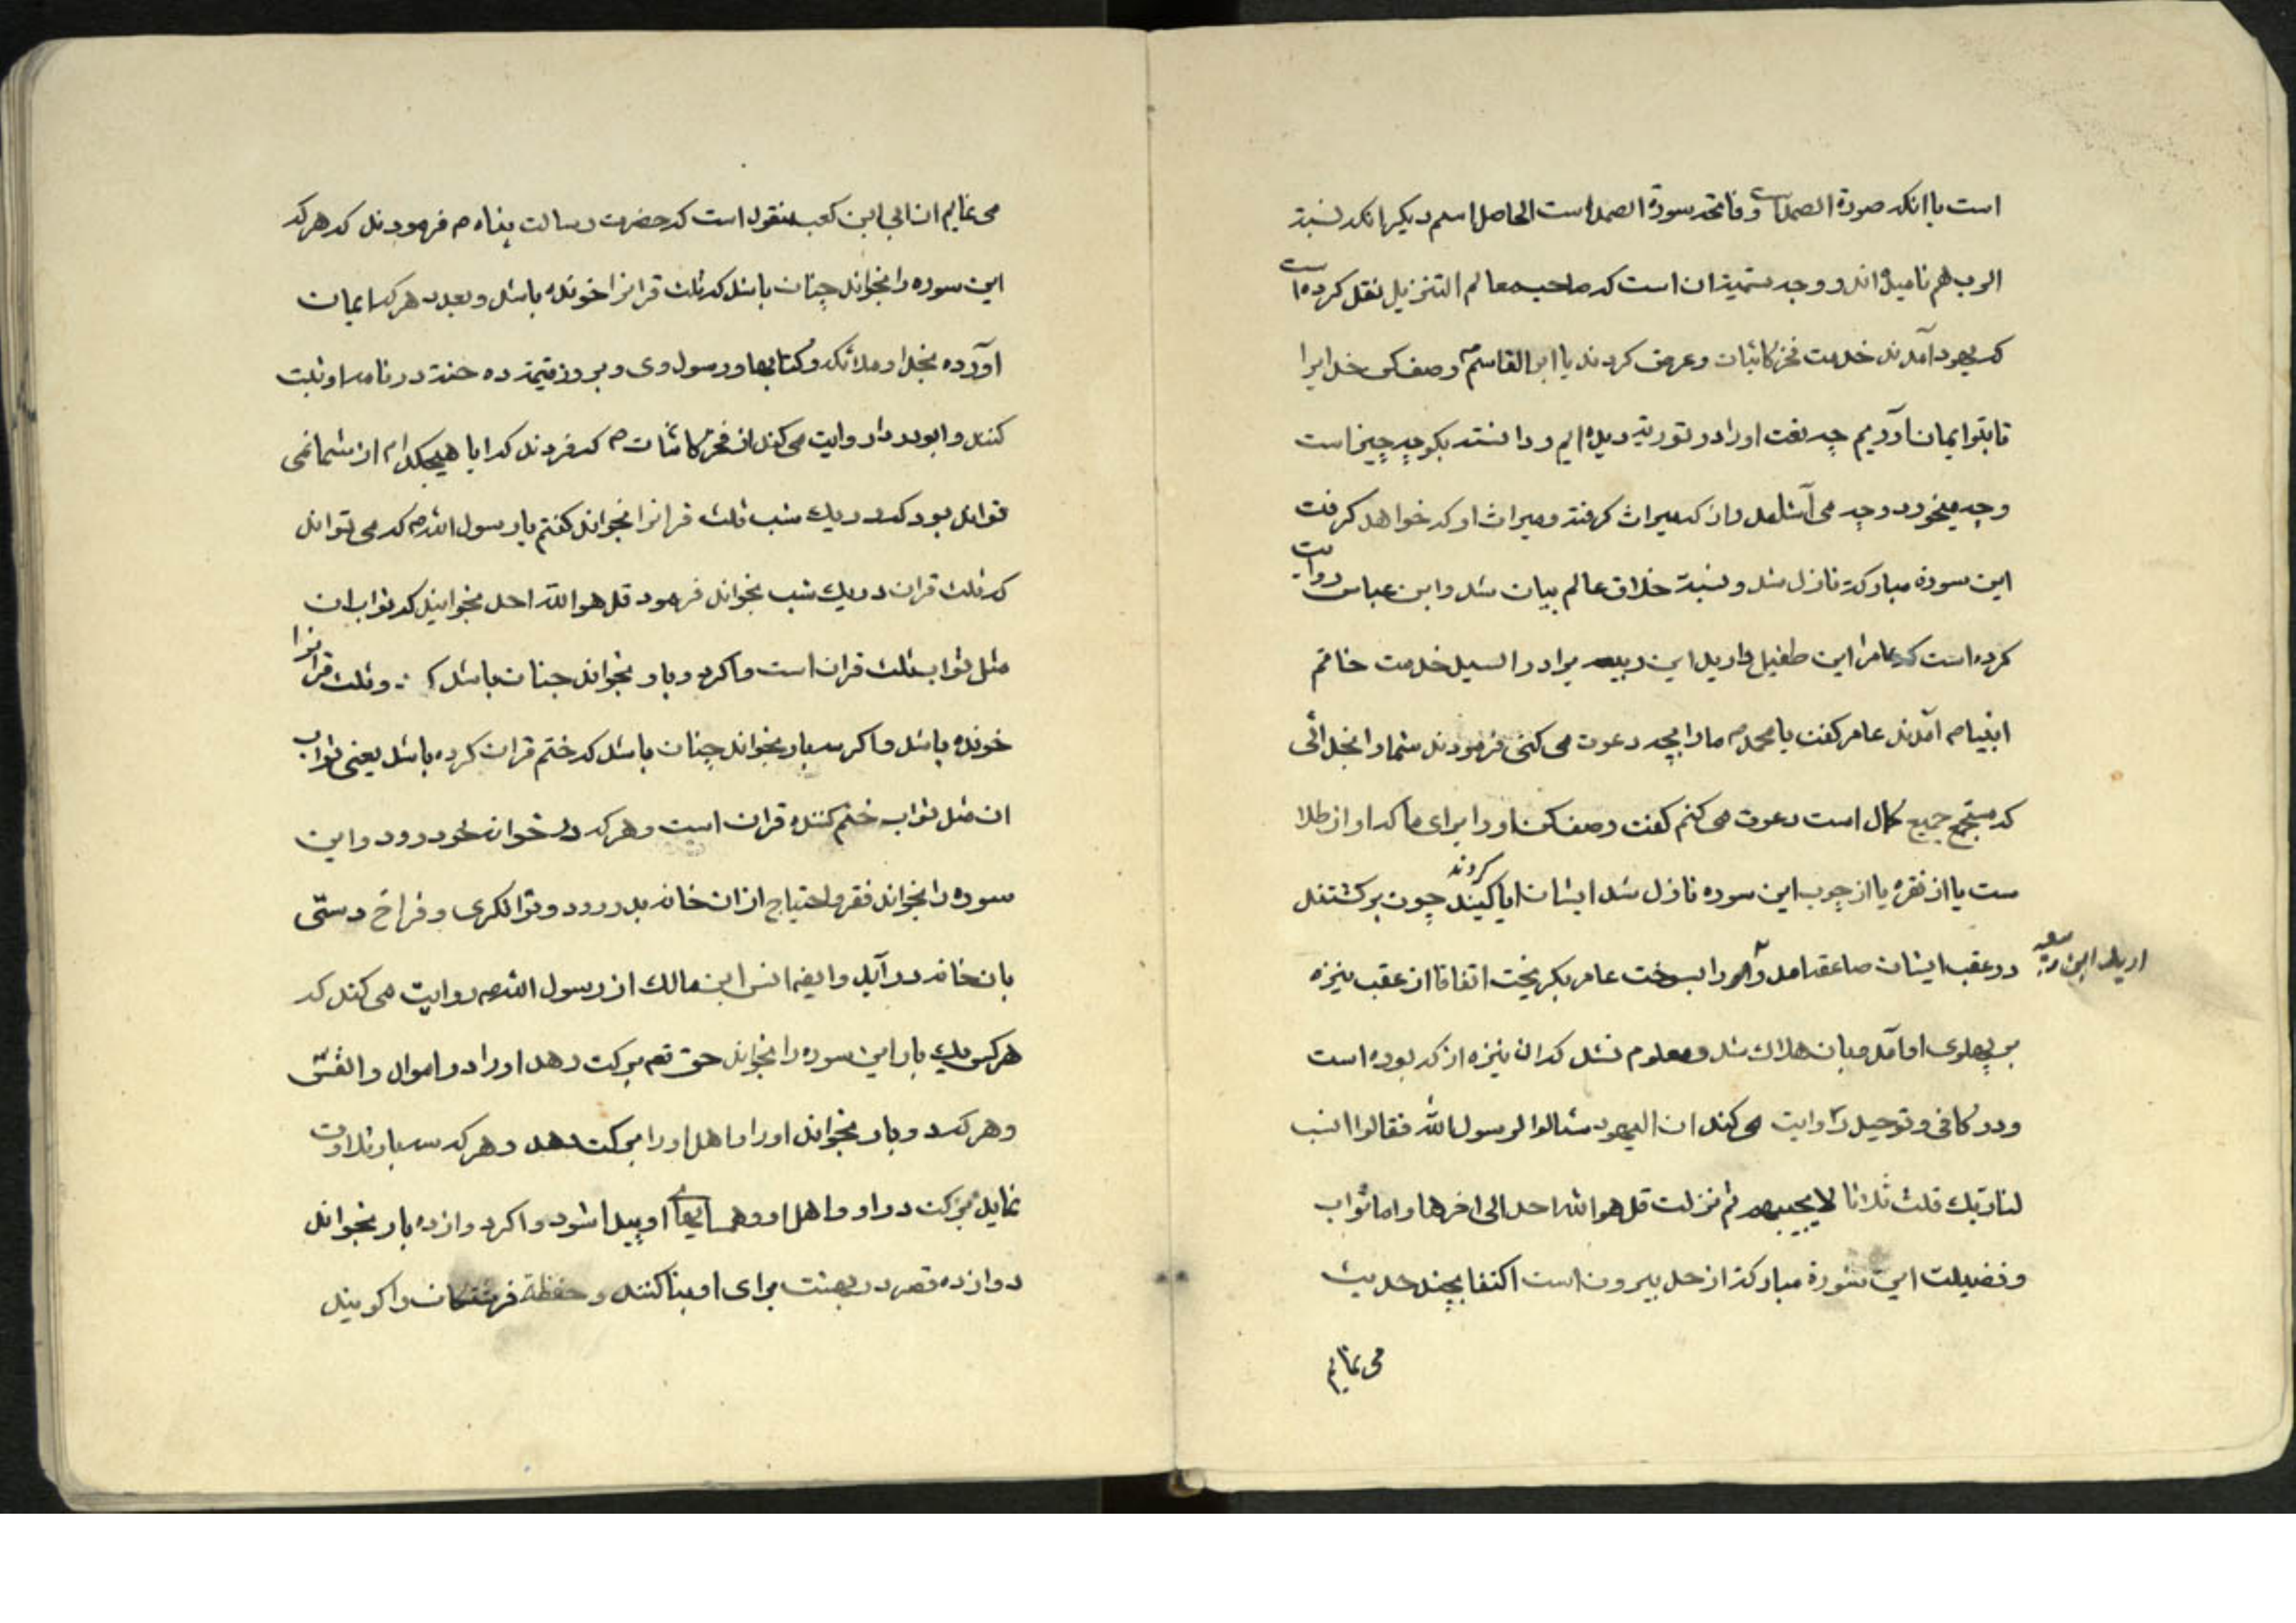 است با انکه صورة الصمد است و فاتحه سورة الصمد است الحاصل اسم دیکر انکه نسبة
الرب هم نامیده اند و وجه تسمیة ان است که صاحب معالم التنزیل نقل کرده است
که یهود آمدند خدمت فخر کاینات و عرض کردند یا ابو القاسم ص وصف کن خدایرا
تا بتو ایمان آوریم چه نعت او را در توریة دیده ایم و دانسته بکو چه چیز است
و چه میخورد و چه می آشامد و از که میراث کرفته و میراث او که خواهد کرفت
این سورة مبارکة نازل شد و نسبة خلاق عالم بیان شد و ابن عباس روایت
کرده است که عامر ابن طفیل و اربد ابن ربیعه برادر السید خدمت خاتم
انبیا ص آمدند عامر کفت یا محمد ص ما را بچه دعوت می کنی فرمودند شما را بخدائی
که مستجمع جمیع کمال است دعوت می کنم کفت وصف کن او را برای ما که او از طلا
ست یا از نقره یا از چوب این سوره نازل شد ایشان ابا کردند چون برکشتند
در عقب ایشان صاعقه آمد و را بسوخت عامر بکریخت اتفاقا از عقب نیزه
اربد ابن ربیعه
بر پهلوی او آمد و بان هلاک شد و معلوم نشد که ان نیزه از که بوده است
و در کافی و توحید روایت می کند ان الیهود سئالوا لرسول الله فقالوا انسب
لنا ربک فلث ثلاثا لا یجیبهم ثم نزلت قل هو الله احد الی اخرها و اما ثواب
و فضیلت این سورة مبارکة از حد بیرون است اکتفا بچند حدیث
می نمایم
می نمایم از ابی ابن کعب منقول است که حضرت رسالت پناه ص فرمودند که هر که
این سوره را بخواند چنان باشد که ثلث قرانرا خونده باشد و بعدد هر که ایمان
آورده بخدا و ملائکه و کتابها و رسول وی و بروز قیمة ده حسنة در نامه او ثبت
کنند و ابو درداء روایت می کند از فخر کائنات ص که فرمودند که ایا هیچکدام از شما نمی
تواند بود که در یک شب ثلث قرانرا بخواند کفتم یا رسول الله ص که می تواند
که ثلث قران در یک شب بخواند فرمود قل هو الله احد بخوانید که ثواب ان
مثل ثواب ثلث قران است و اکر دو بار بخواند چنان باشد که دو ثلث قرانرا
خونده باشد و اکر سه بار بخواند چنان باشد که ختم قران کرده باشد یعنی ثواب
ان مثل ثواب ختم کننده قران است و هر که در خوانه خود رود و این
سوره را بخواند فقر و احتیاج از ان خانه بدر رود و توانکری و فراخ دستی
بان خانه در آید و ایضا انس ابن مالک از رسول الله ص روایت می کند که
هر کس یک بار این سوره را بخواند حق تعم برکت دهد او را در اموال و انفس
و هر که دو بار بخواند او را و اهل او را برکت دهد و هر که سه بار تلاوت
نماید برکت در او و اهل او و همسایها او پیدا شود و اکر دوازده بار بخواند
دوازده قصر در بهشت برای او بنا کنند و حفظة فرشتکان را کویند